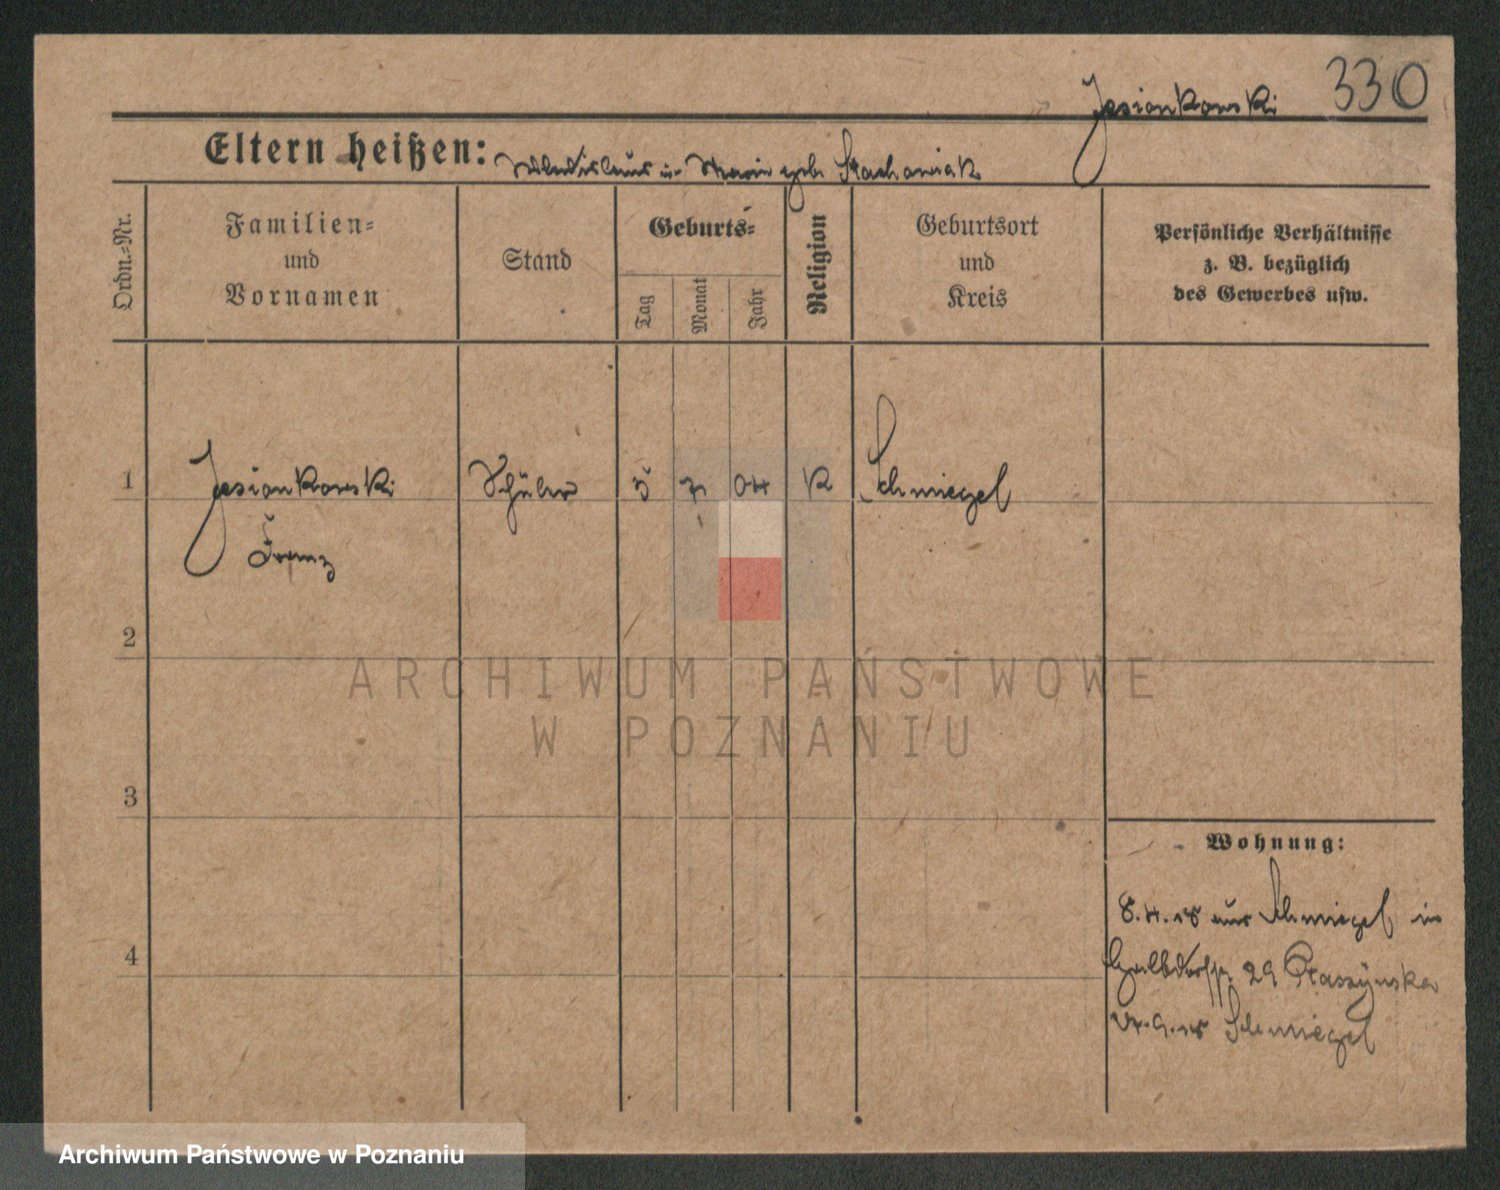 330
Jesionkowski
Eltern heißen: Wladislaus u. Marie geb Stachowiak
Ordn.-Nr.
Familien-
und
Vornamen
Stand
Geburts-
Tag
Monat
Jahr
Religion
Geburtsort
und
Kreis
Persönliche Verhältnisse
z. B. bezüglich
des Gewerbes usw.
1
Jesionkowski
Franz
Schüler
3
7
04
K
Schmiegel
2
3
4
Wohnung:
8.4.18 aus Schmiegel in
29 Ptaszynska
Schmiegel
ARCHIWUM PAŃSTWOWE
W POZNANIU
Archiwum Państwowe w Poznaniu